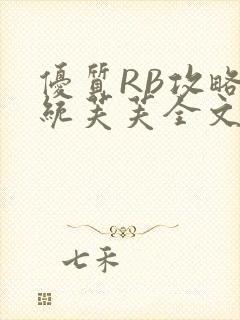 優質RB攻略
統芙芙全文
七禾